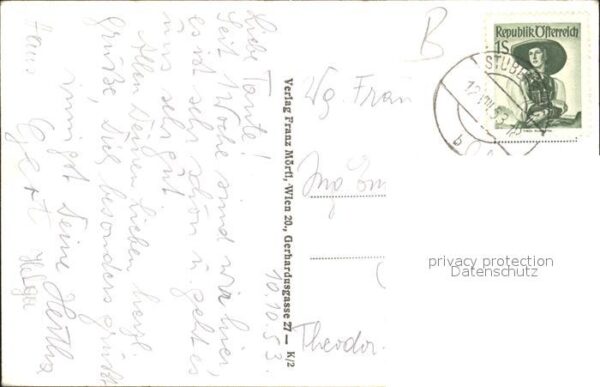 Liebe Tante!
Seit 1 Woche sind wir hier,
es ist sehr schön u. geht es
uns sehr gut.
Allen Deinen Lieben herzl.
Grüße, Dich besonders grüßt
innigst Deine Hertha
Hans Gert Helga
10.10.53.
Verlag Franz Mörtl, Wien 20., Gerhardusgasse 27 — K/2
B
Republik Österreich
1S
STUB
b
Wg. Frau
Ing
Theodor.
privacy protection
Datenschutz